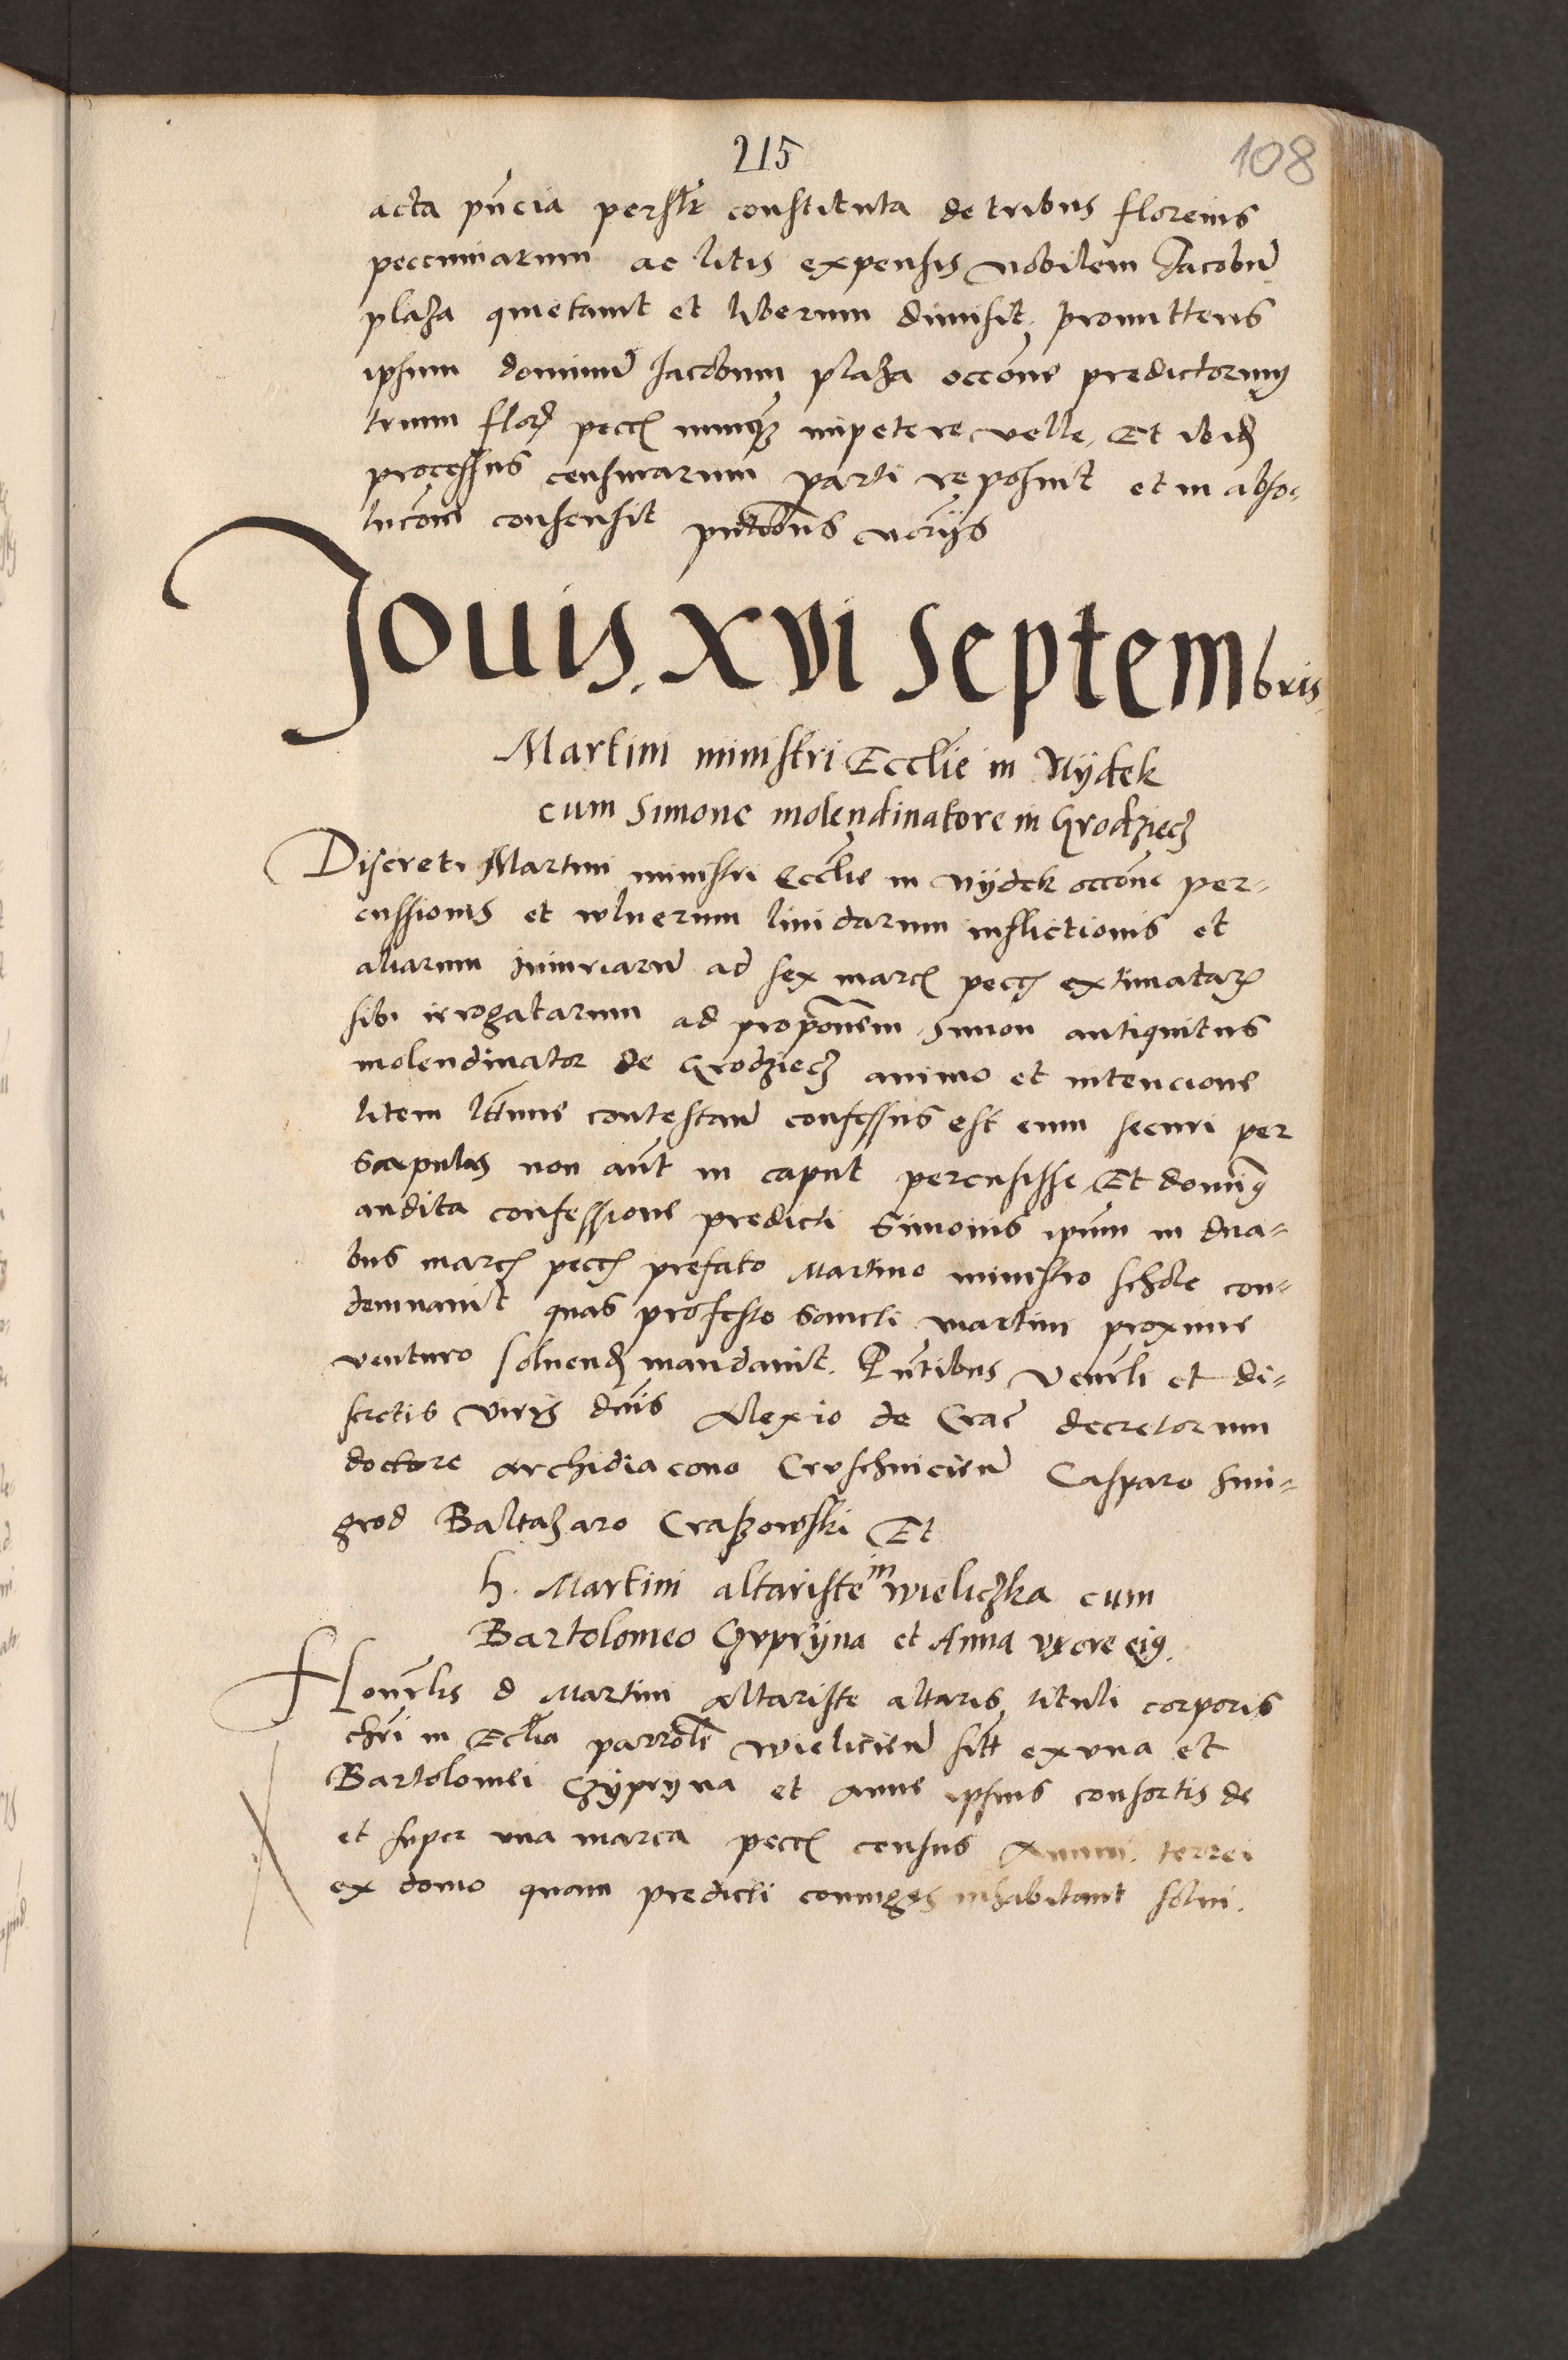 215
108
acta pn̄cia personaliter constituta de tribus florenis
peccuniarum ac litis expensis nobilem Jacobū
plaza quietauit et liberum dimisit. promittens
ipsum dominū Jacobum plaza occōne predictorum
trium flor pecc nunq impetere velle, Et ibid
processus censurarum parti reposuit et in abso-
lucōm consensit pn̄tibus
Jouis. XVI Septembris
Martini ministri Ecclie in Nydek
cum Simone molendinatore in Grodziecz
Discreti Martini ministri Ecclie in nydek occōne per-
cussionis et wlnerum liuidarum inflictionis et
aliarum iniuriarū ad sex marc pecc extimatarum
sibi irrogatarum ad proponem Simon antiquitus
molendinator de Grodziecz animo et intencione
litem lttime contestan confessus est eum securi per
scapulas non aut in caput percusisse, Et dominus
audita confessione predicti Simonis ipsum in dua-
bus marc pecc prefato Martino ministro schole con-
demnauit quas pro festo Sancti martini proxime
venturo soluend mandauit. Pntibus Venrli et di-
scretis viris dnis Alexio de Crac decretorum
doctore archidiacono Cruschuicien Casparo Smi-
grod Baltazaro Craszowski Et
h. Martini altariste in wieliczka cum
Bartolomeo Gypryna et Anna vxore eius.
Honrlis d Martini altariste altaris tituli corporis
chri in Ecclia parrole wielicien sitt ex vna et
Bartolomei Czypryna et anne ipsius consortis de
et super vna marca pecc census Annui. terrei
ex domo quam predicti coniuges inhabitant solui.